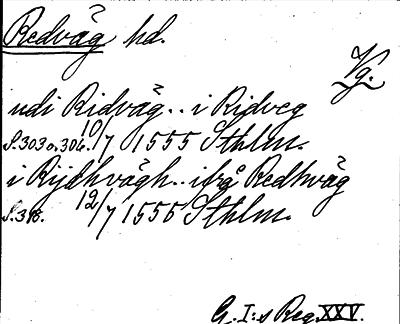 Redväg hd.
Vg.
udi Ridväg.. i Rijdveg
S.303 o. 304. 10/7 1555 Sthlm.
i Rijdhvägh.. ifrå Redhwäg
S.318. 12/7 1555 Sthlm.
G. I:s Reg. XXV.